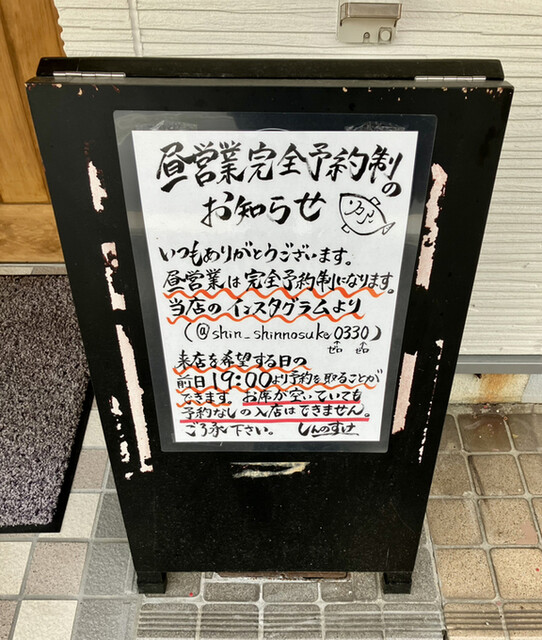 昼営業完全予約制の
お知らせ
いつもありがとうございます。
昼営業は完全予約制になります。
当店のインスタグラムより
(@shin_shinnosuke0330)
ゼロ ゼロ
来店を希望する日の
前日19:00より予約を取ることが
できます。お席が空いていても
予約なしの入店はできません。
ご了承下さい。 しんのすけ